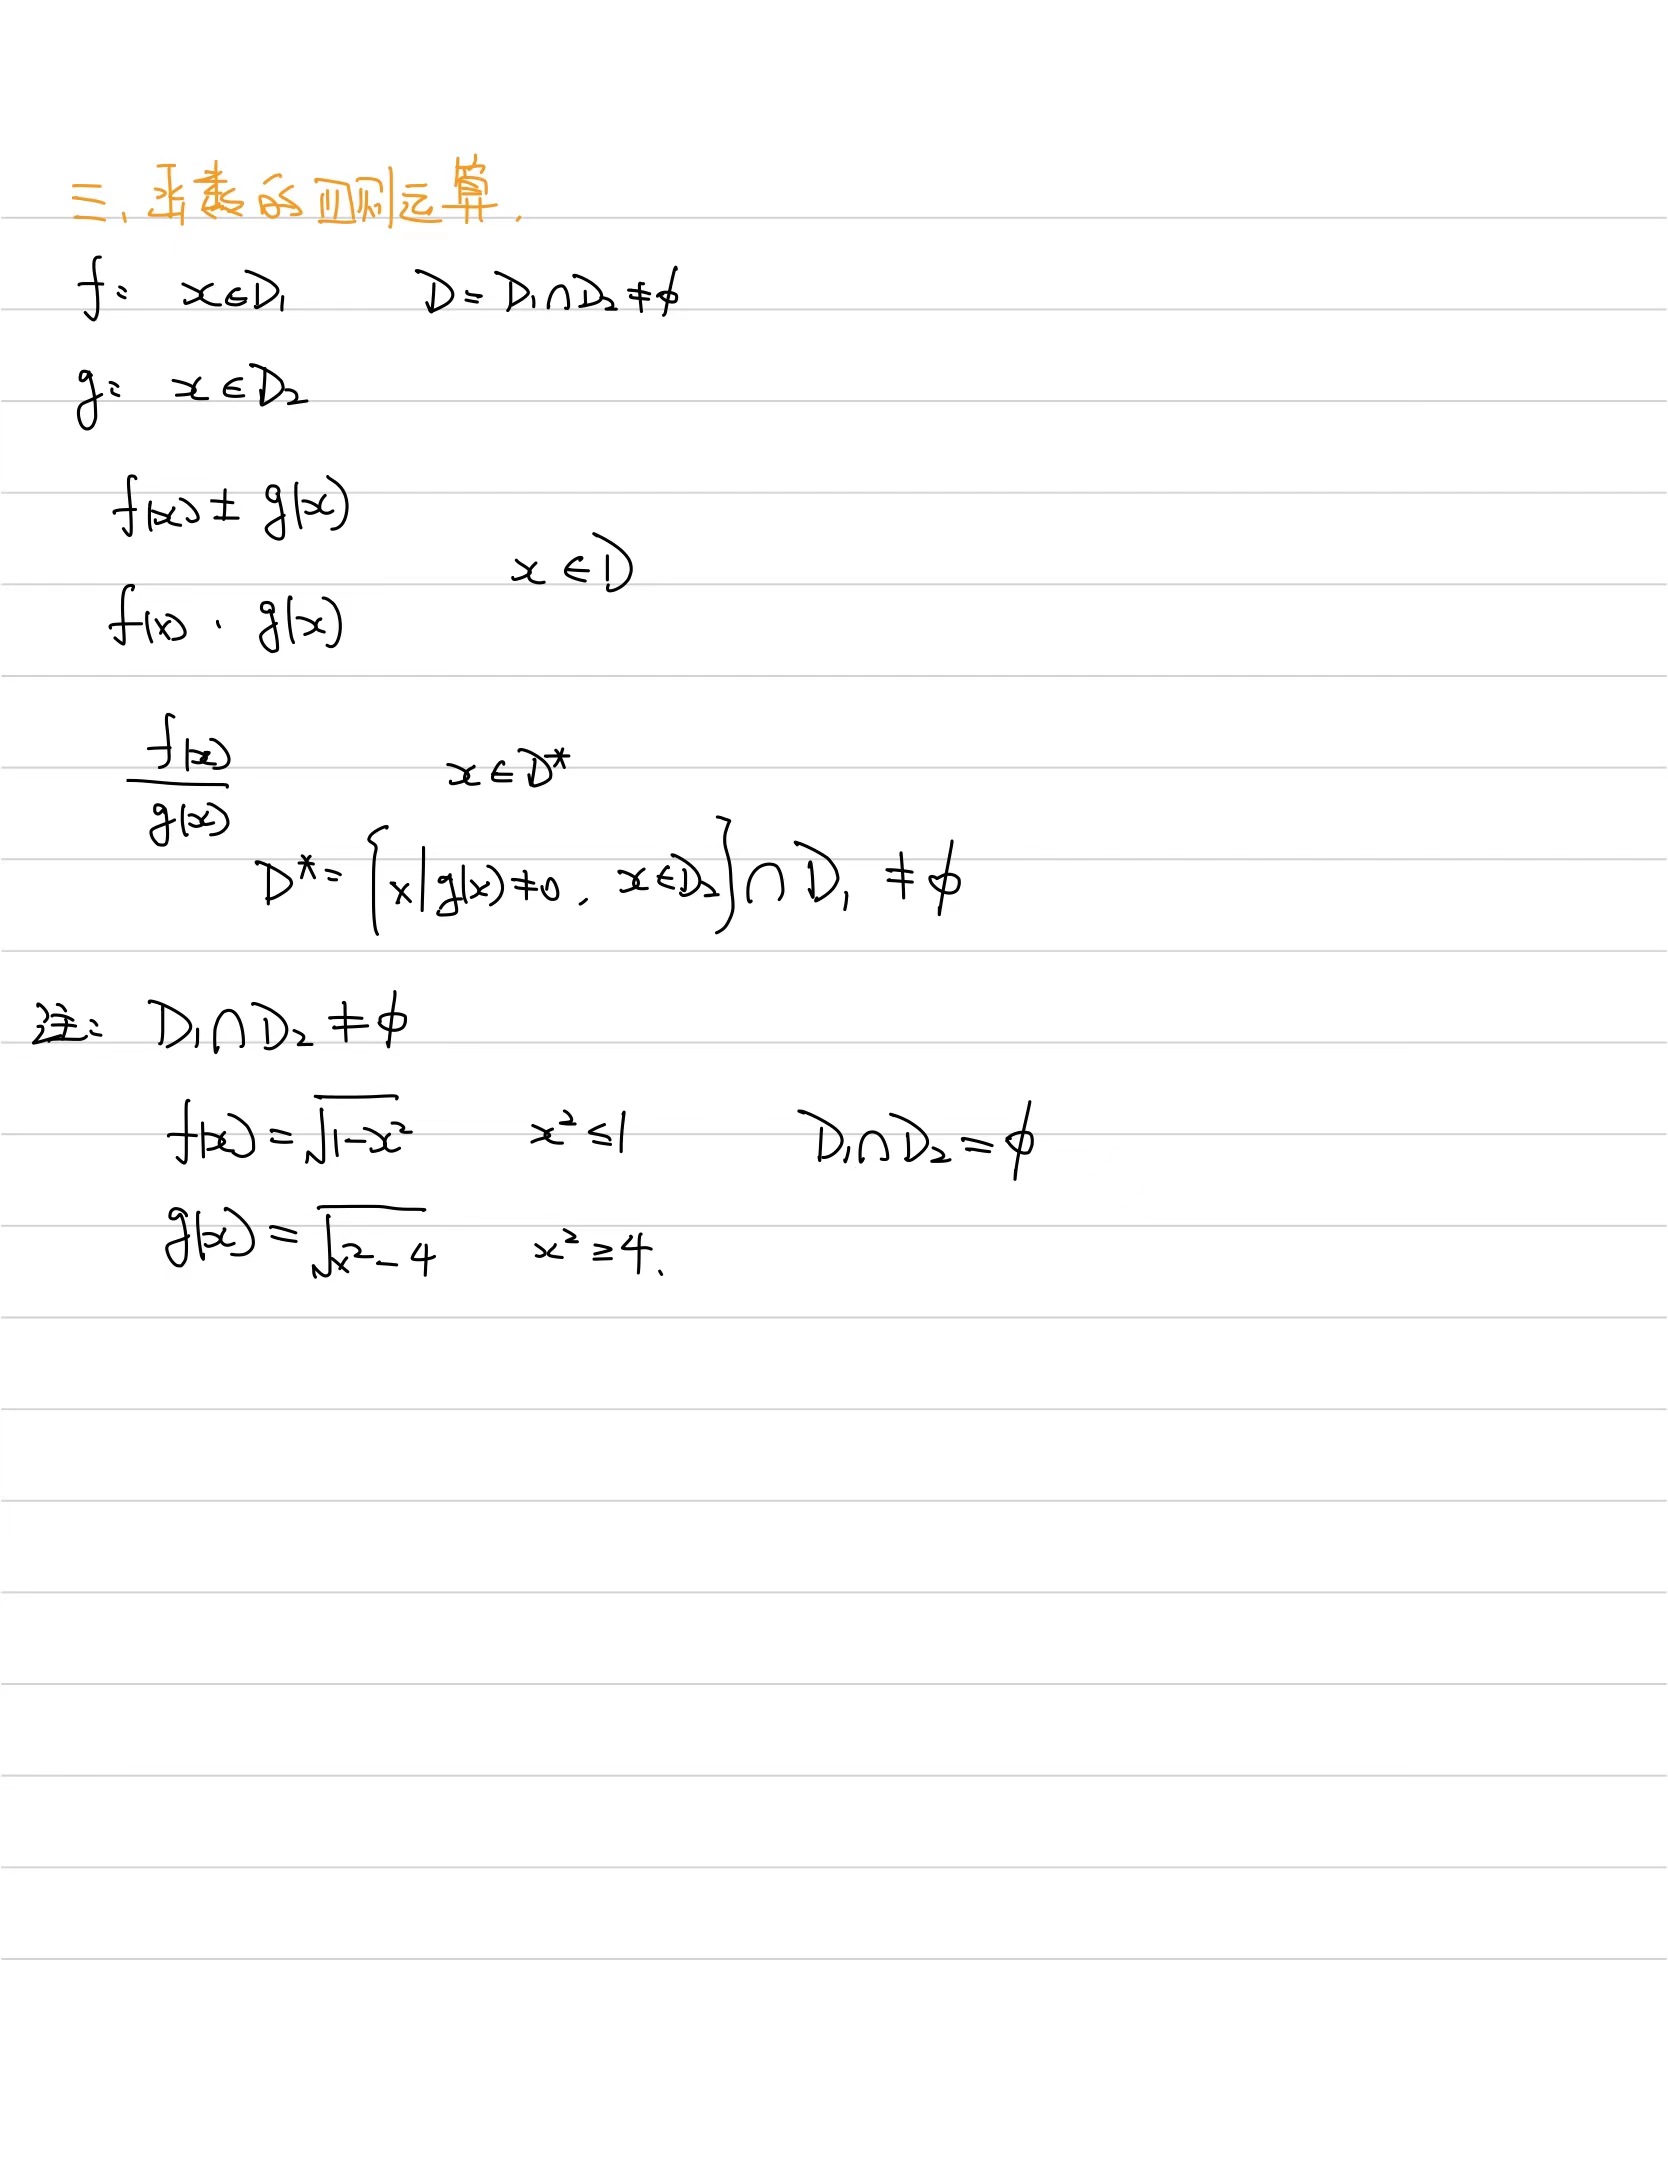 三、函数的四则运算.
f: x∈D₁ D=D₁∩D₂≠ϕ
g: x∈D₂
f(x)±g(x)
x∈D
f(x)·g(x)
f(x)/g(x) x∈D*
D*={x|g(x)≠0, x∈D₂}∩D₁≠ϕ
注: D₁∩D₂≠ϕ
f(x)=√(1-x²) x²≤1 D₁∩D₂=ϕ
g(x)=√(x²-4) x²≥4.